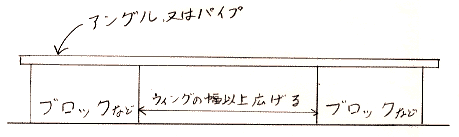 アングル、又はパイプ
ブロックなど
ウィングの幅以上広げる
ブロックなど